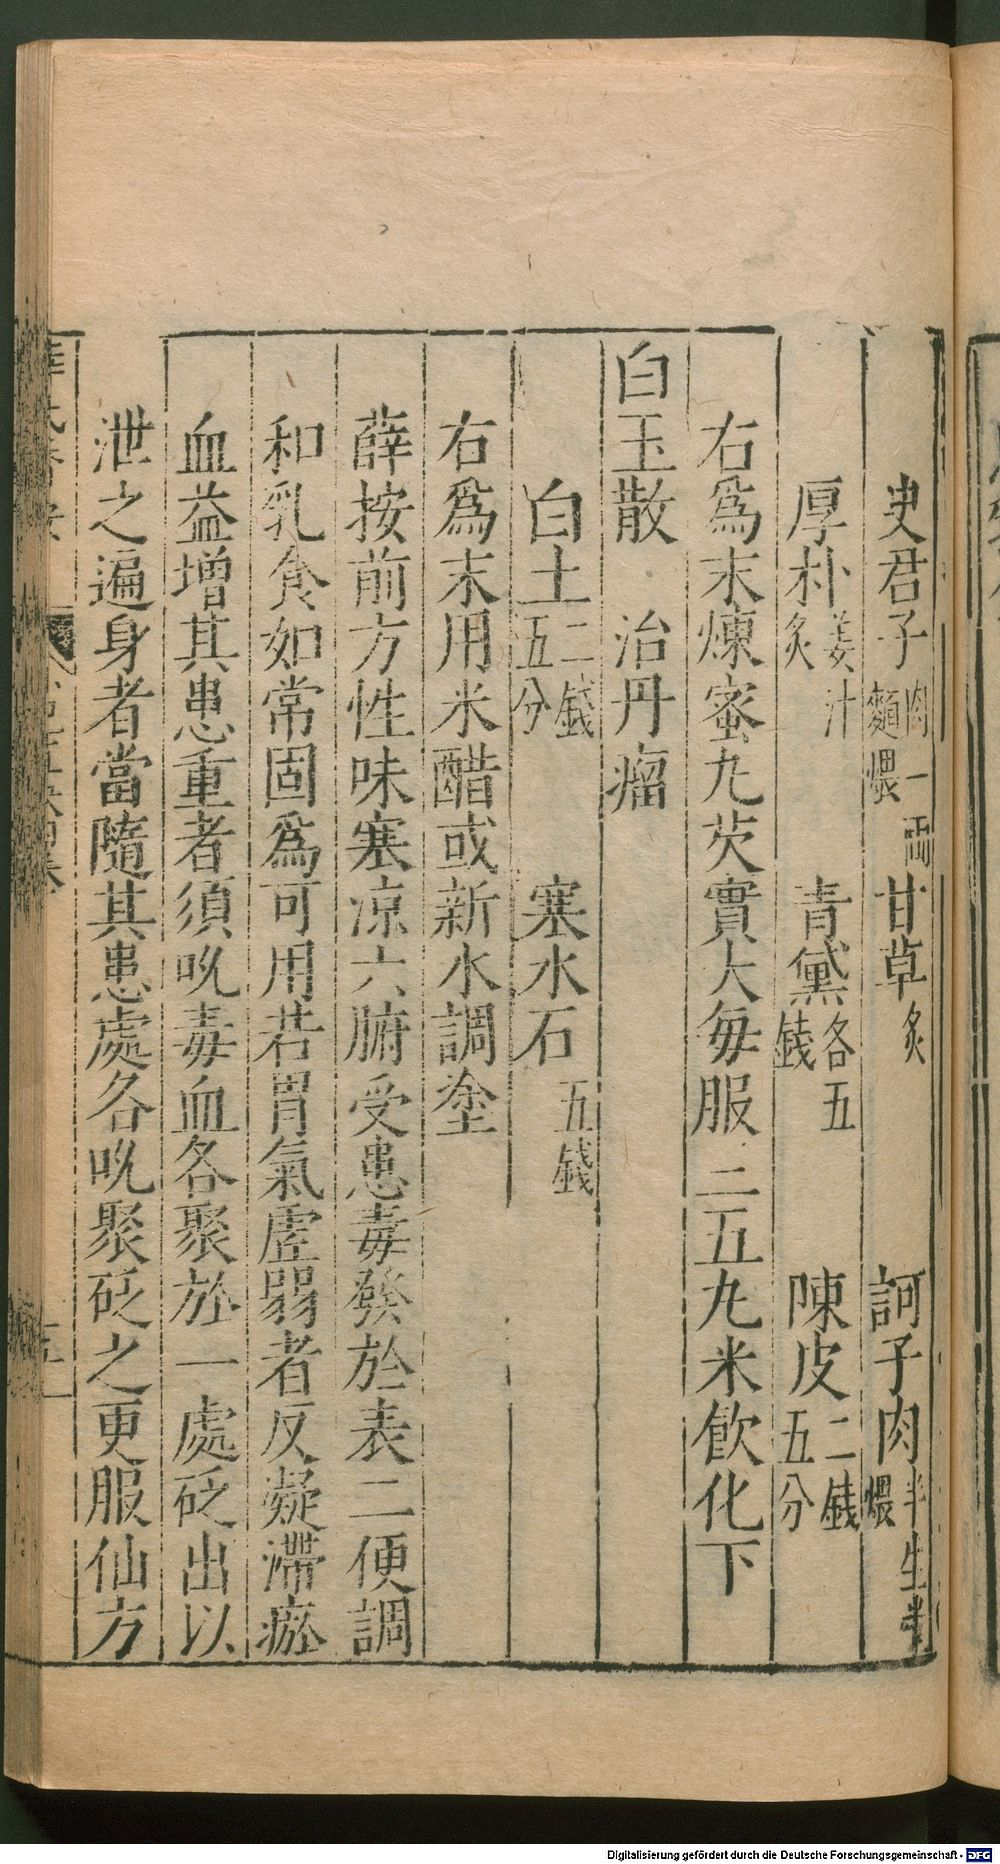 史君子肉一両麵煨甘草炙訶子肉半生半煨
厚朴姜汁炙青黛各五錢陳皮二錢五分
右爲末煉蜜丸芡實大每服二五丸米飮化下
白玉散治丹瘤
白土二錢五分寒水石五錢
右爲末用米醋或新水調塗
薛按前方性味寒凉六腑受患毒發於表二便調
和乳食如常固爲可用若胃氣虛弱者反凝滯瘀
血益增其患重者須吮毒血各聚於一處砭出以
泄之遍身者當隨其患處各吮聚砭之更服仙方
Digitalisierung gefördert durch die Deutsche Forschungsgemeinschaft - DFG